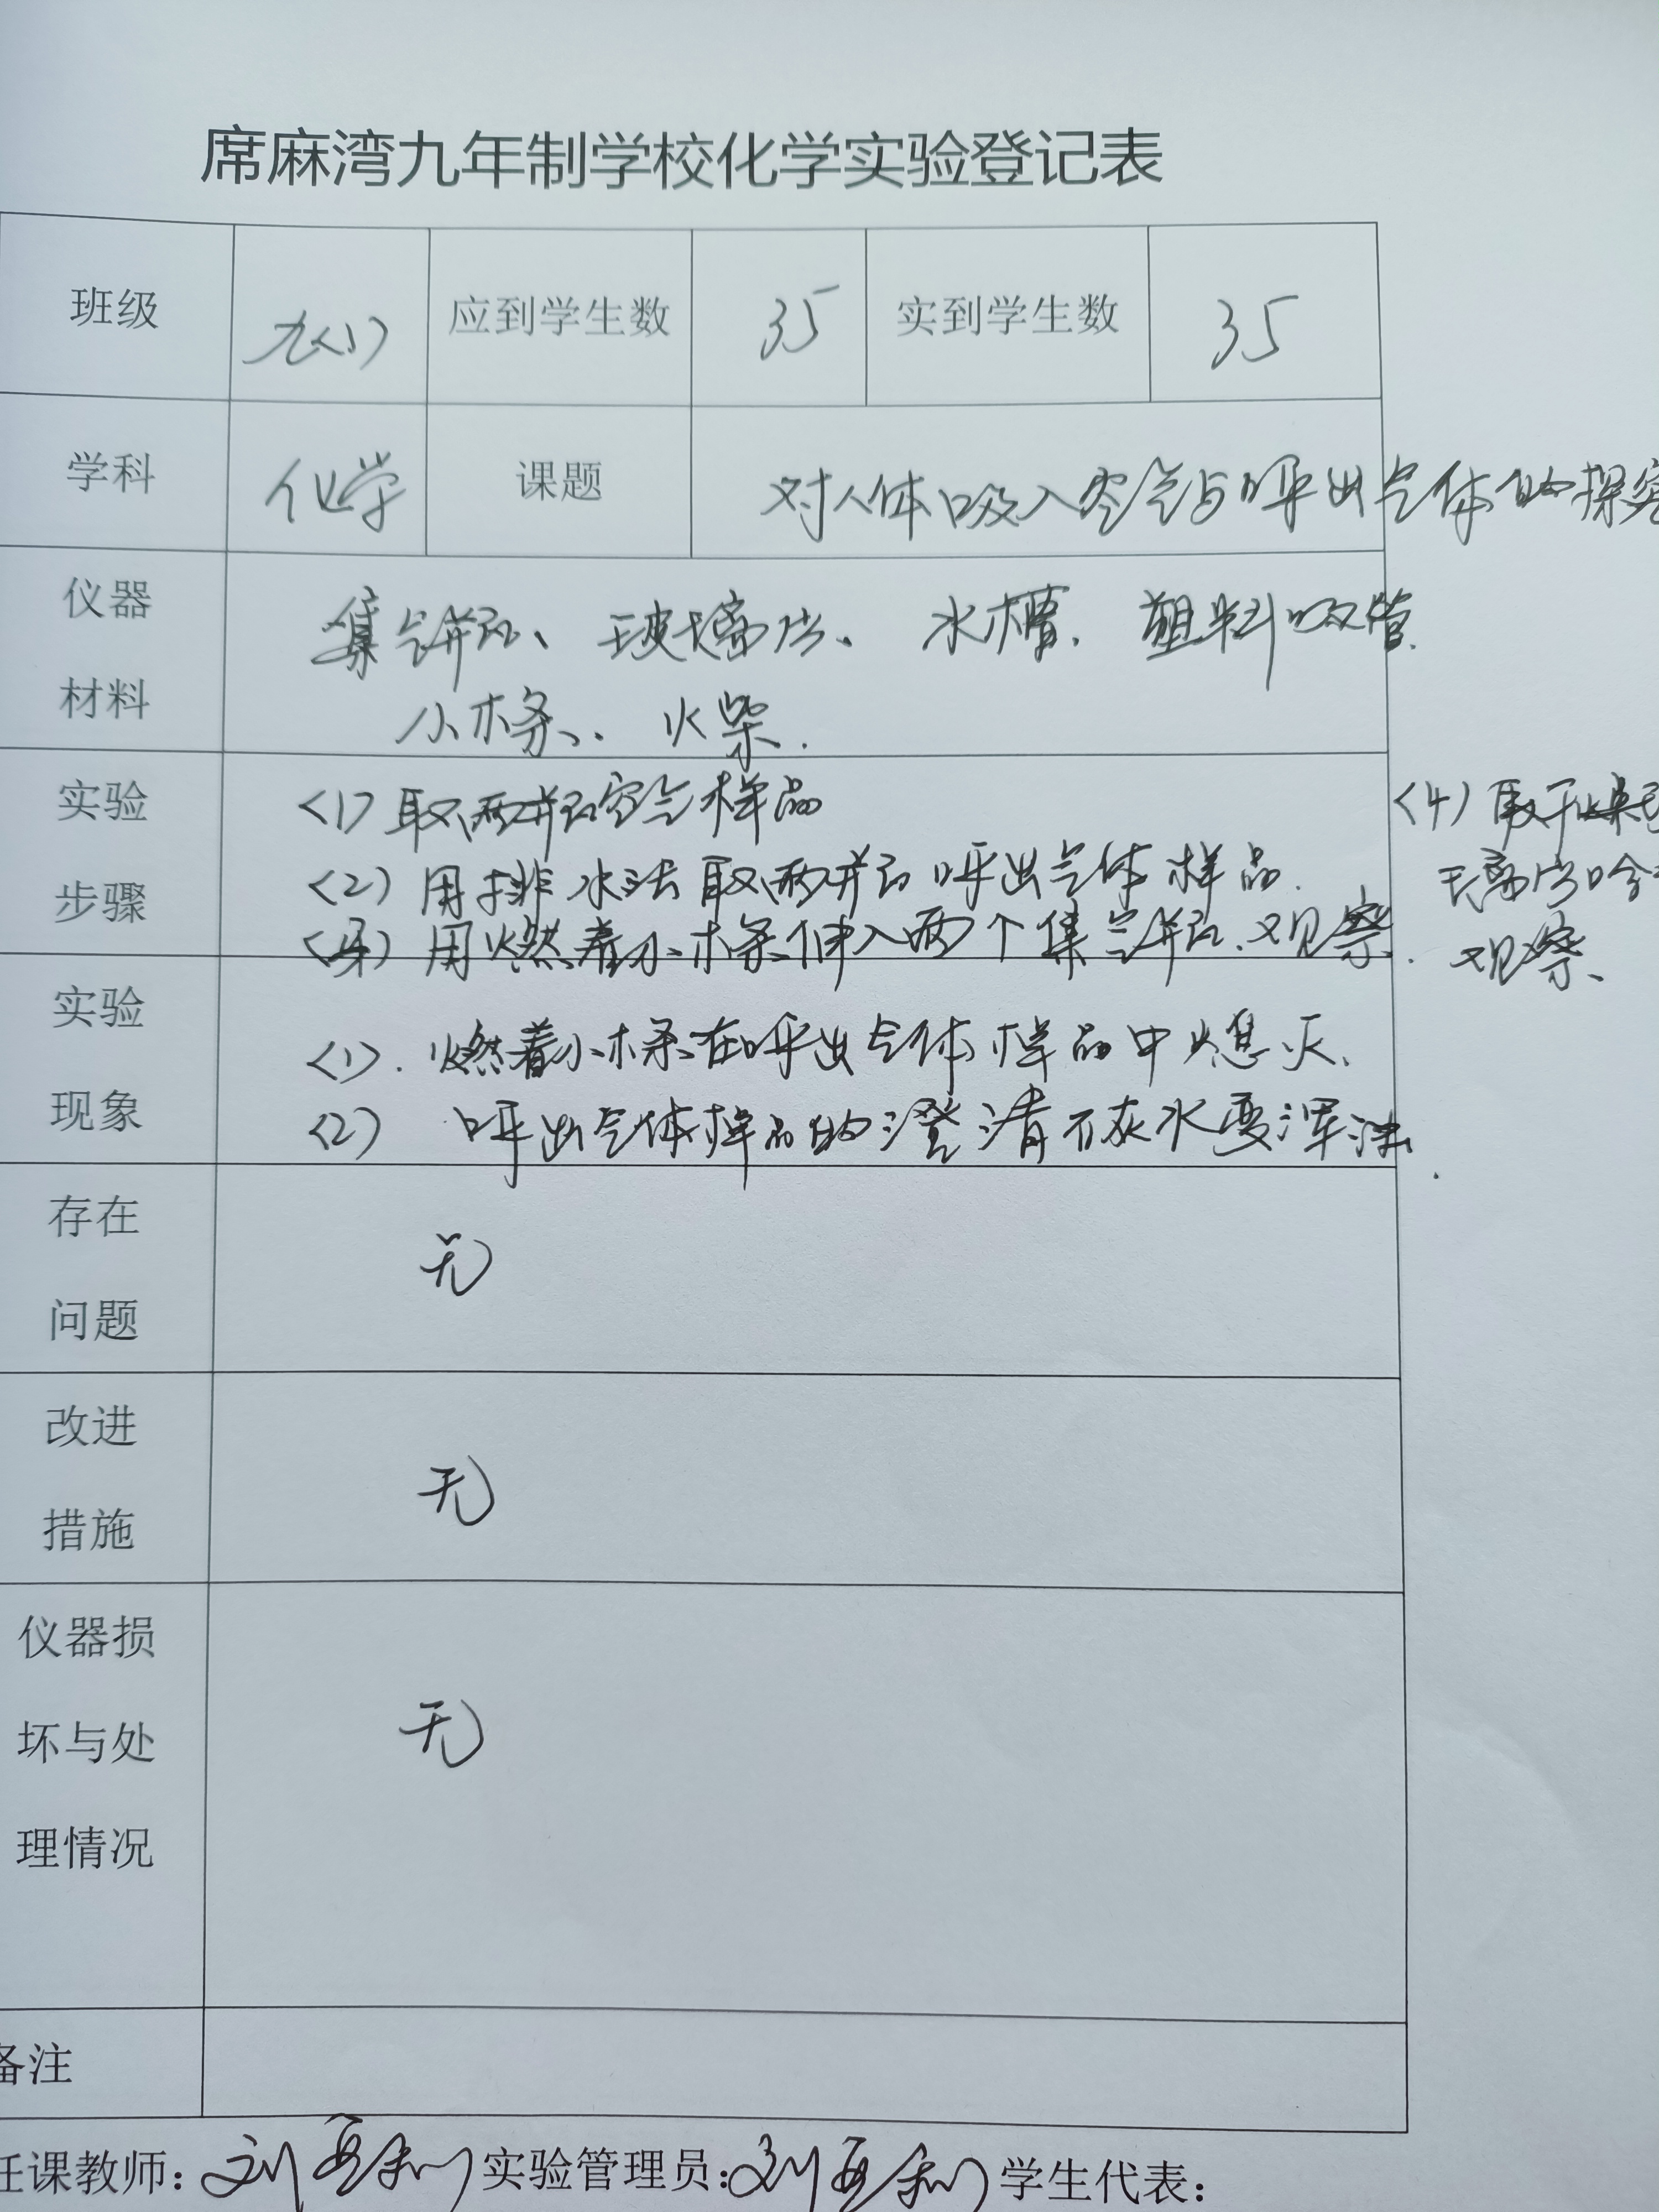 席麻湾九年制学校化学实验登记表
班级 九(1) 应到学生数 35 实到学生数 35
学科 化学 课题 对人体吸入空气与呼出气体的探究
仪器 集气瓶、玻璃片、水槽、塑料吸管
材料 小木条、火柴.
实验 <1>取两瓶空气样品 <4>取干燥
步骤 <2>用排水法取两瓶呼出气体样品. 璃片哈
<3>用燃着小木条伸入两个集气瓶、观察. 观察、
实验 <1>. 燃着小木条在呼出气体样品中熄灭、
现象 <2> 呼出气体样品的澄清石灰水变浑浊.
存在
问题 无
改进
措施 无
仪器损
坏与处 无
理情况
备注
任课教师: 刘 实验管理员: 刘 学生代表: